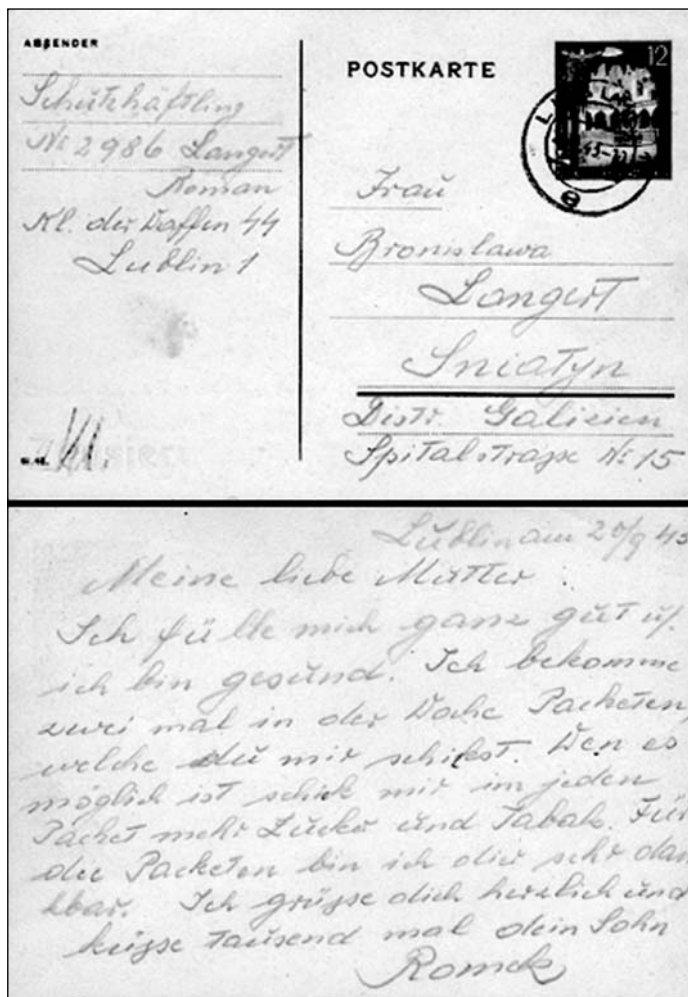 ABSENDER
Schutzhäftling
№ 2986 Langert
Roman
Kl. der Waffen SS
Lublin 1
POSTKARTE
12
Frau
Bronislawa
Langert
Sniatyn
Distr. Galizien
Spitalstrasse № 15
Lublin am 20/9 43
Meine liebe Mutter
Ich fülle mich ganz gut u.
ich bin gesund. Ich bekomme
zwei mal in der Woche Packeten,
welche du mir schikst. Wen es
möglich ist schick mir im jeden
Packet mehr Zucker und Tabak. Für
die Packeten bin ich dir sehr dan
kbar. Ich grüsse dich herzlich und
küsse tausend mal dein Sohn
Romek